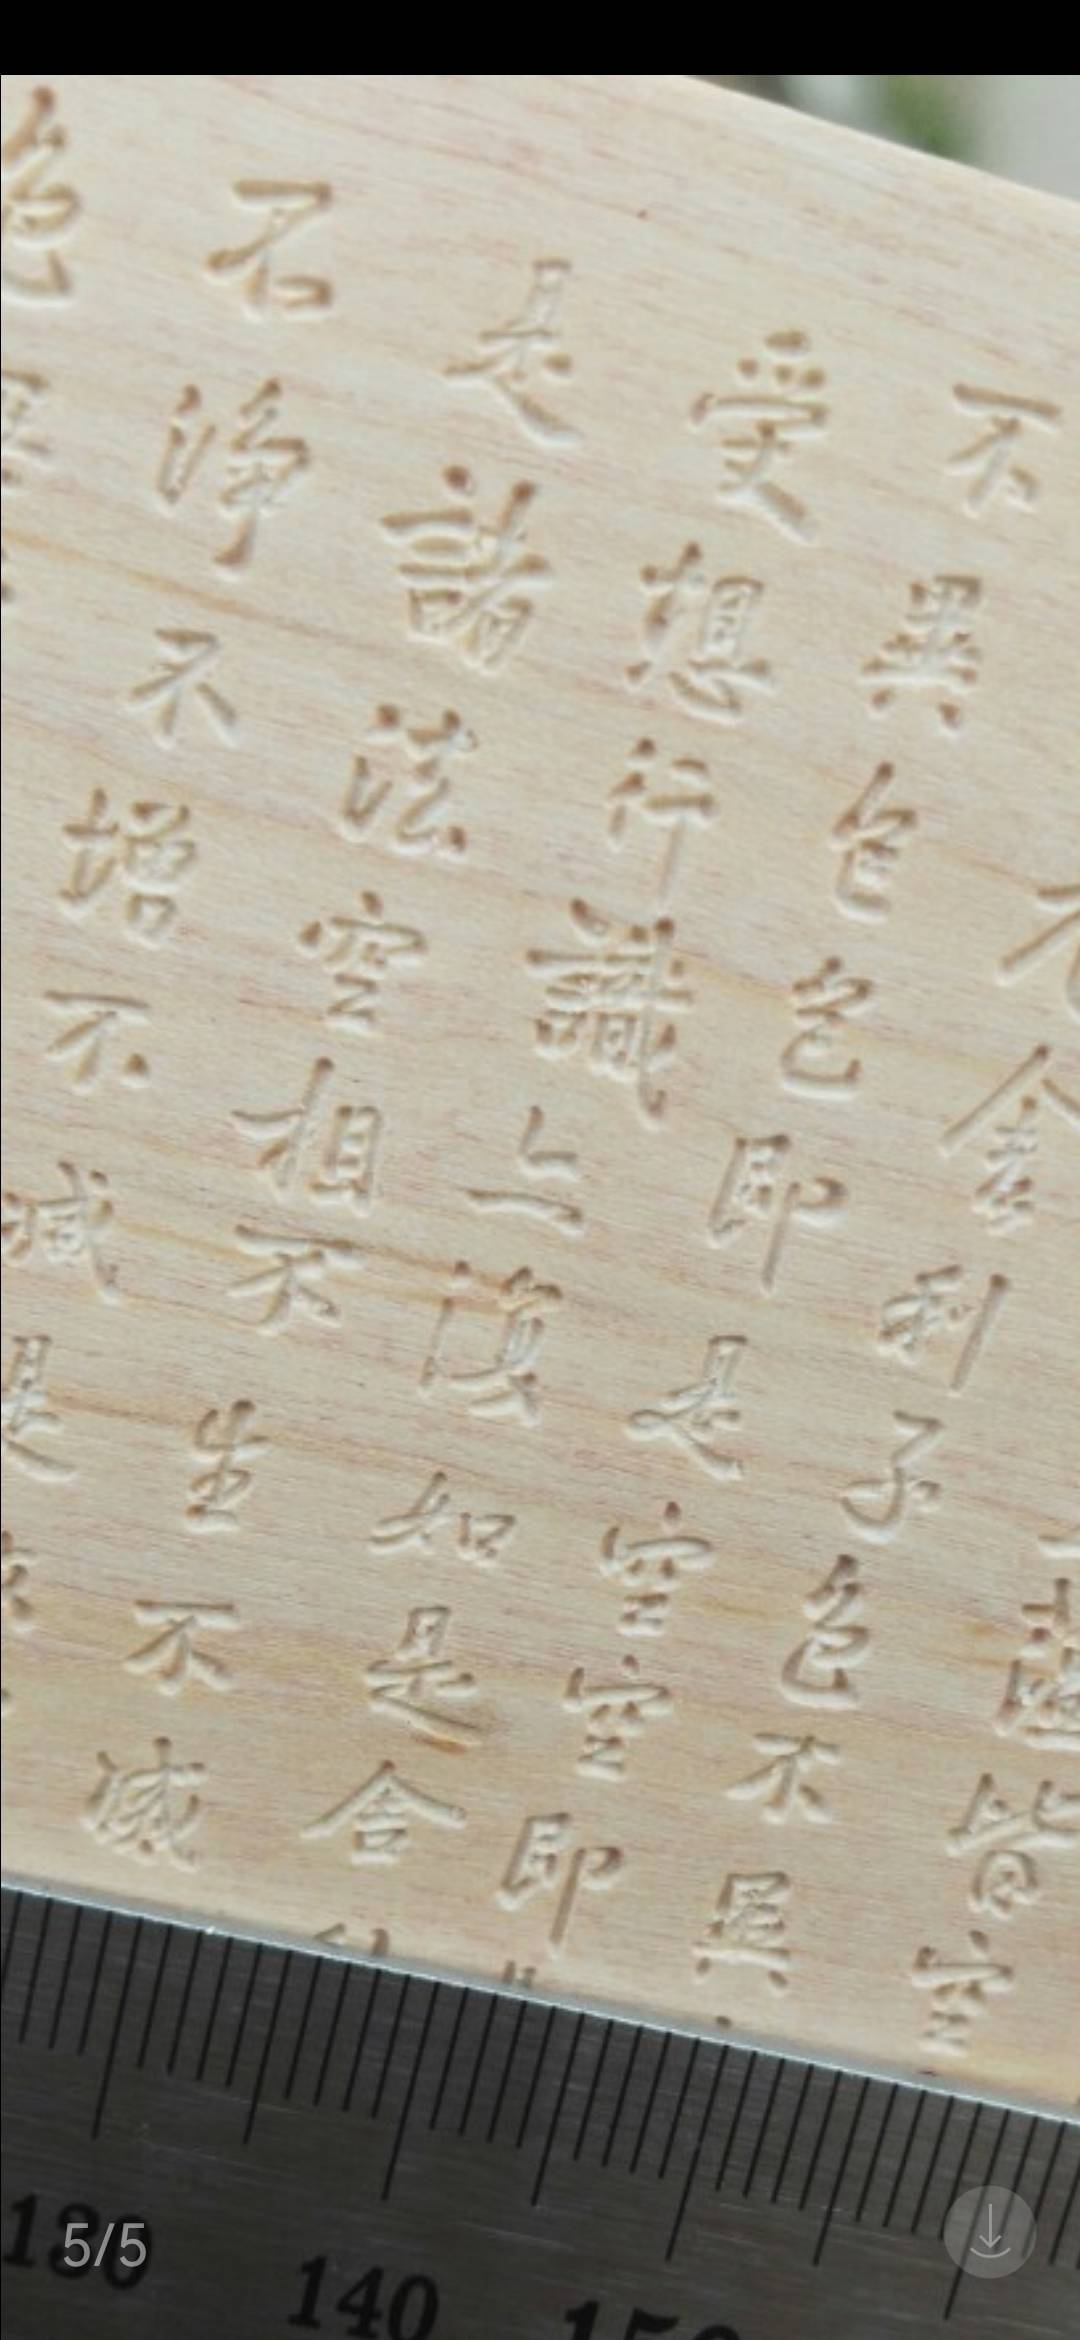 蘊皆空
舍利子色不異
不異色色即是空空即
受想行識亦復如是舍
是諸法空相不生不滅
不淨不增不減是
色